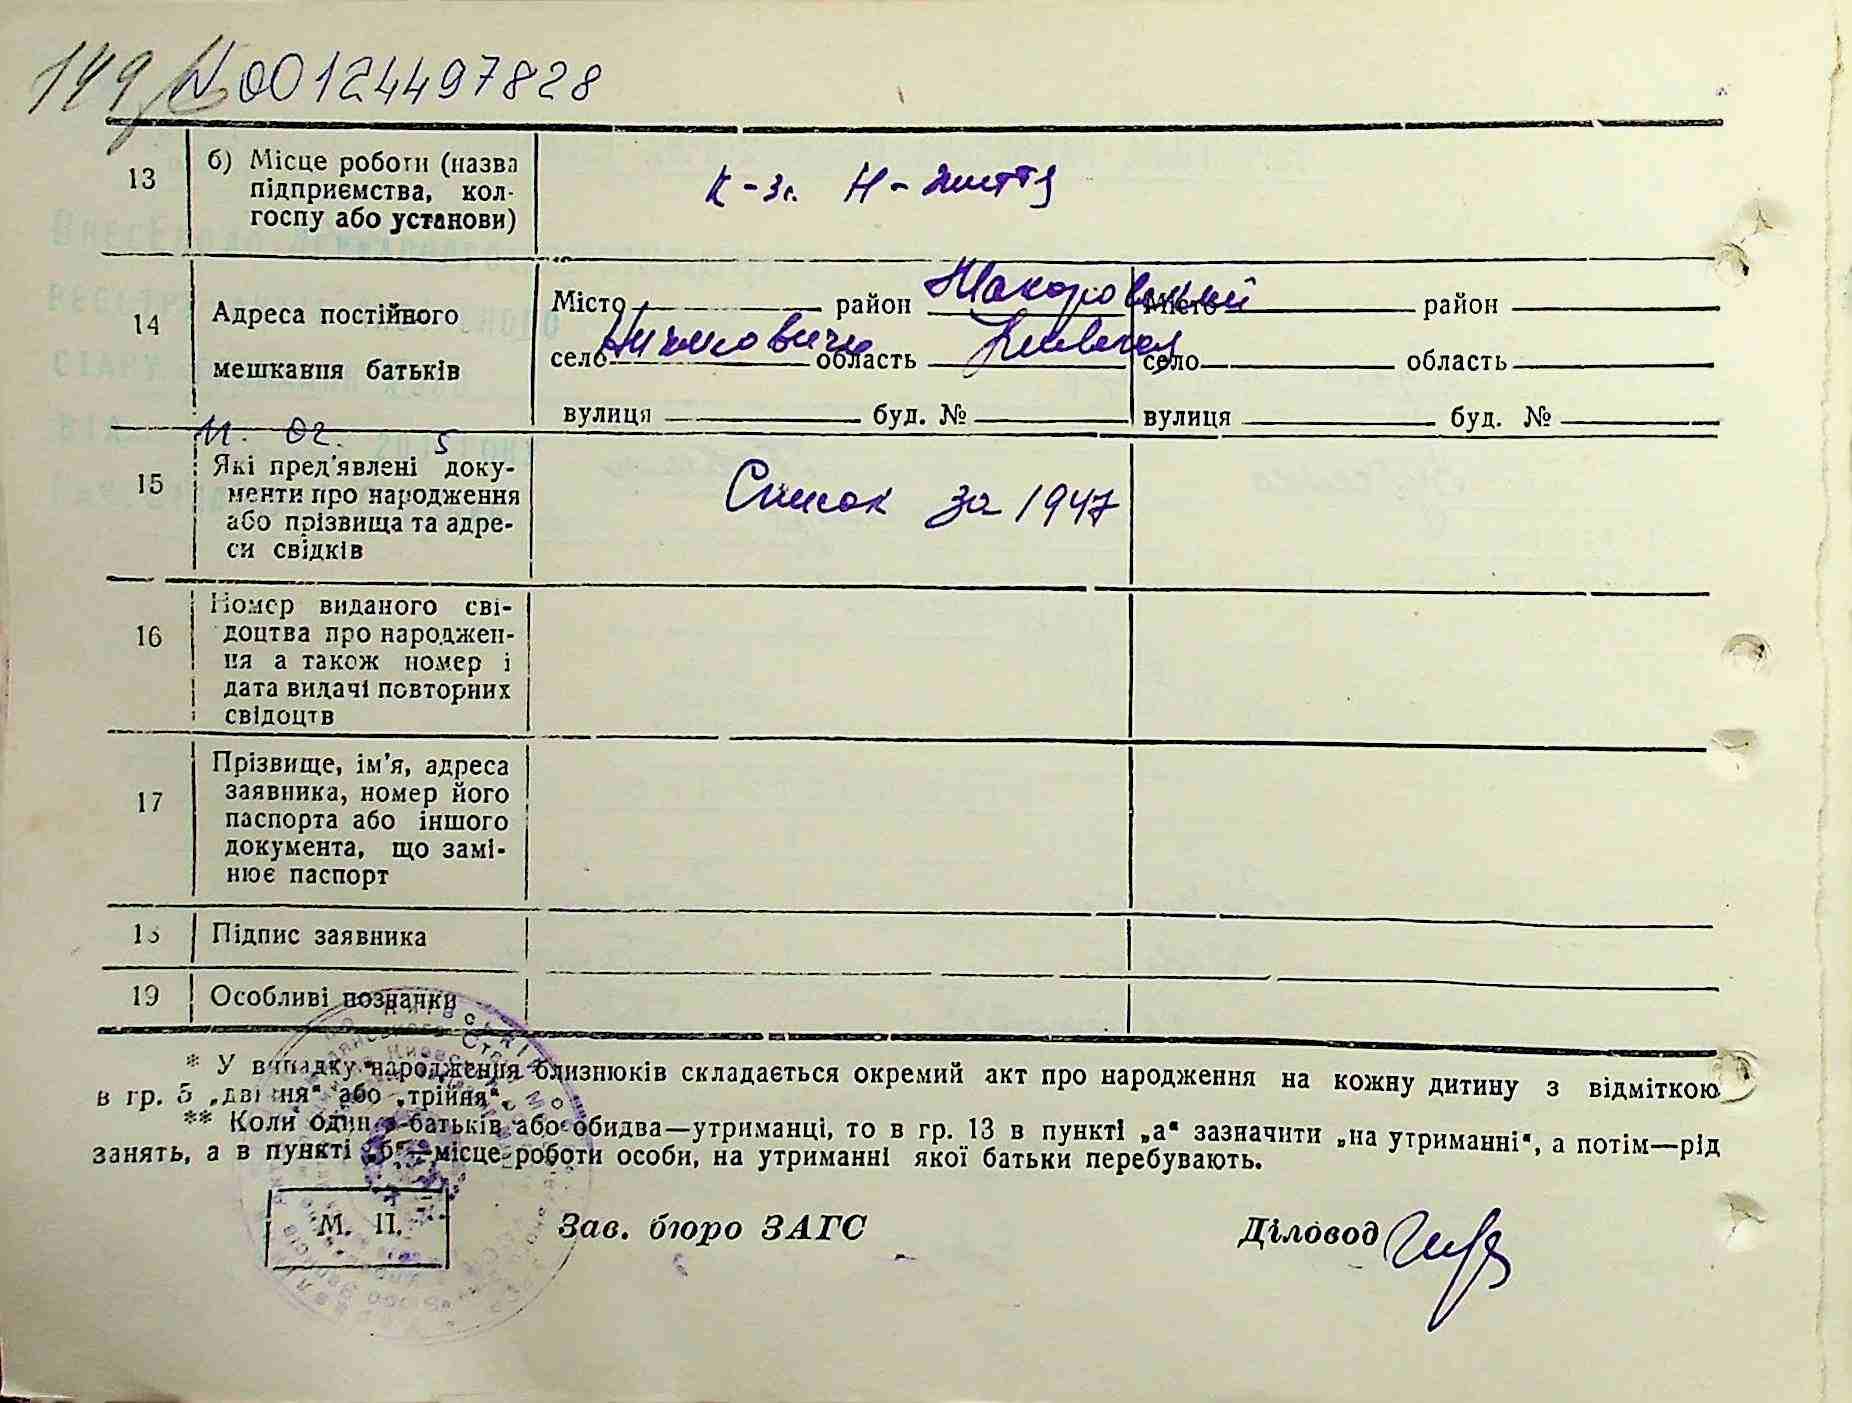 149 N00124497828
13 б) Місце роботи (назва
підприємства, кол-
госпу або установи)
К-з. Н-життя
14 Адреса постійного
мешкання батьків
Місто район Макаровський Місто район
село область Київська село область
вулиця буд. № вулиця буд. №
11. 02. 5
15 Які пред'явлені доку-
менти про народження
або прізвища та адре-
си свідків
Список за 1947
16 Номер виданого сві-
доцтва про народжен-
ня а також номер і
дата видачі повторних
свідоцтв
17 Прізвище, ім'я, адреса
заявника, номер його
паспорта або іншого
документа, що замі-
нює паспорт
18 Підпис заявника
19 Особливі позначки
* У випадку народження близнюків складається окремий акт про народження на кожну дитину з відміткою
в гр. 5 „двійня“ або „трійня“.
** Коли один з батьків або обидва—утриманці, то в гр. 13 в пункті „а“ зазначити „на утриманні“, а потім—рід
занять, а в пункті „б“—місце роботи особи, на утриманні якої батьки перебувають.
М. П. Зав. бюро ЗАГС Діловод